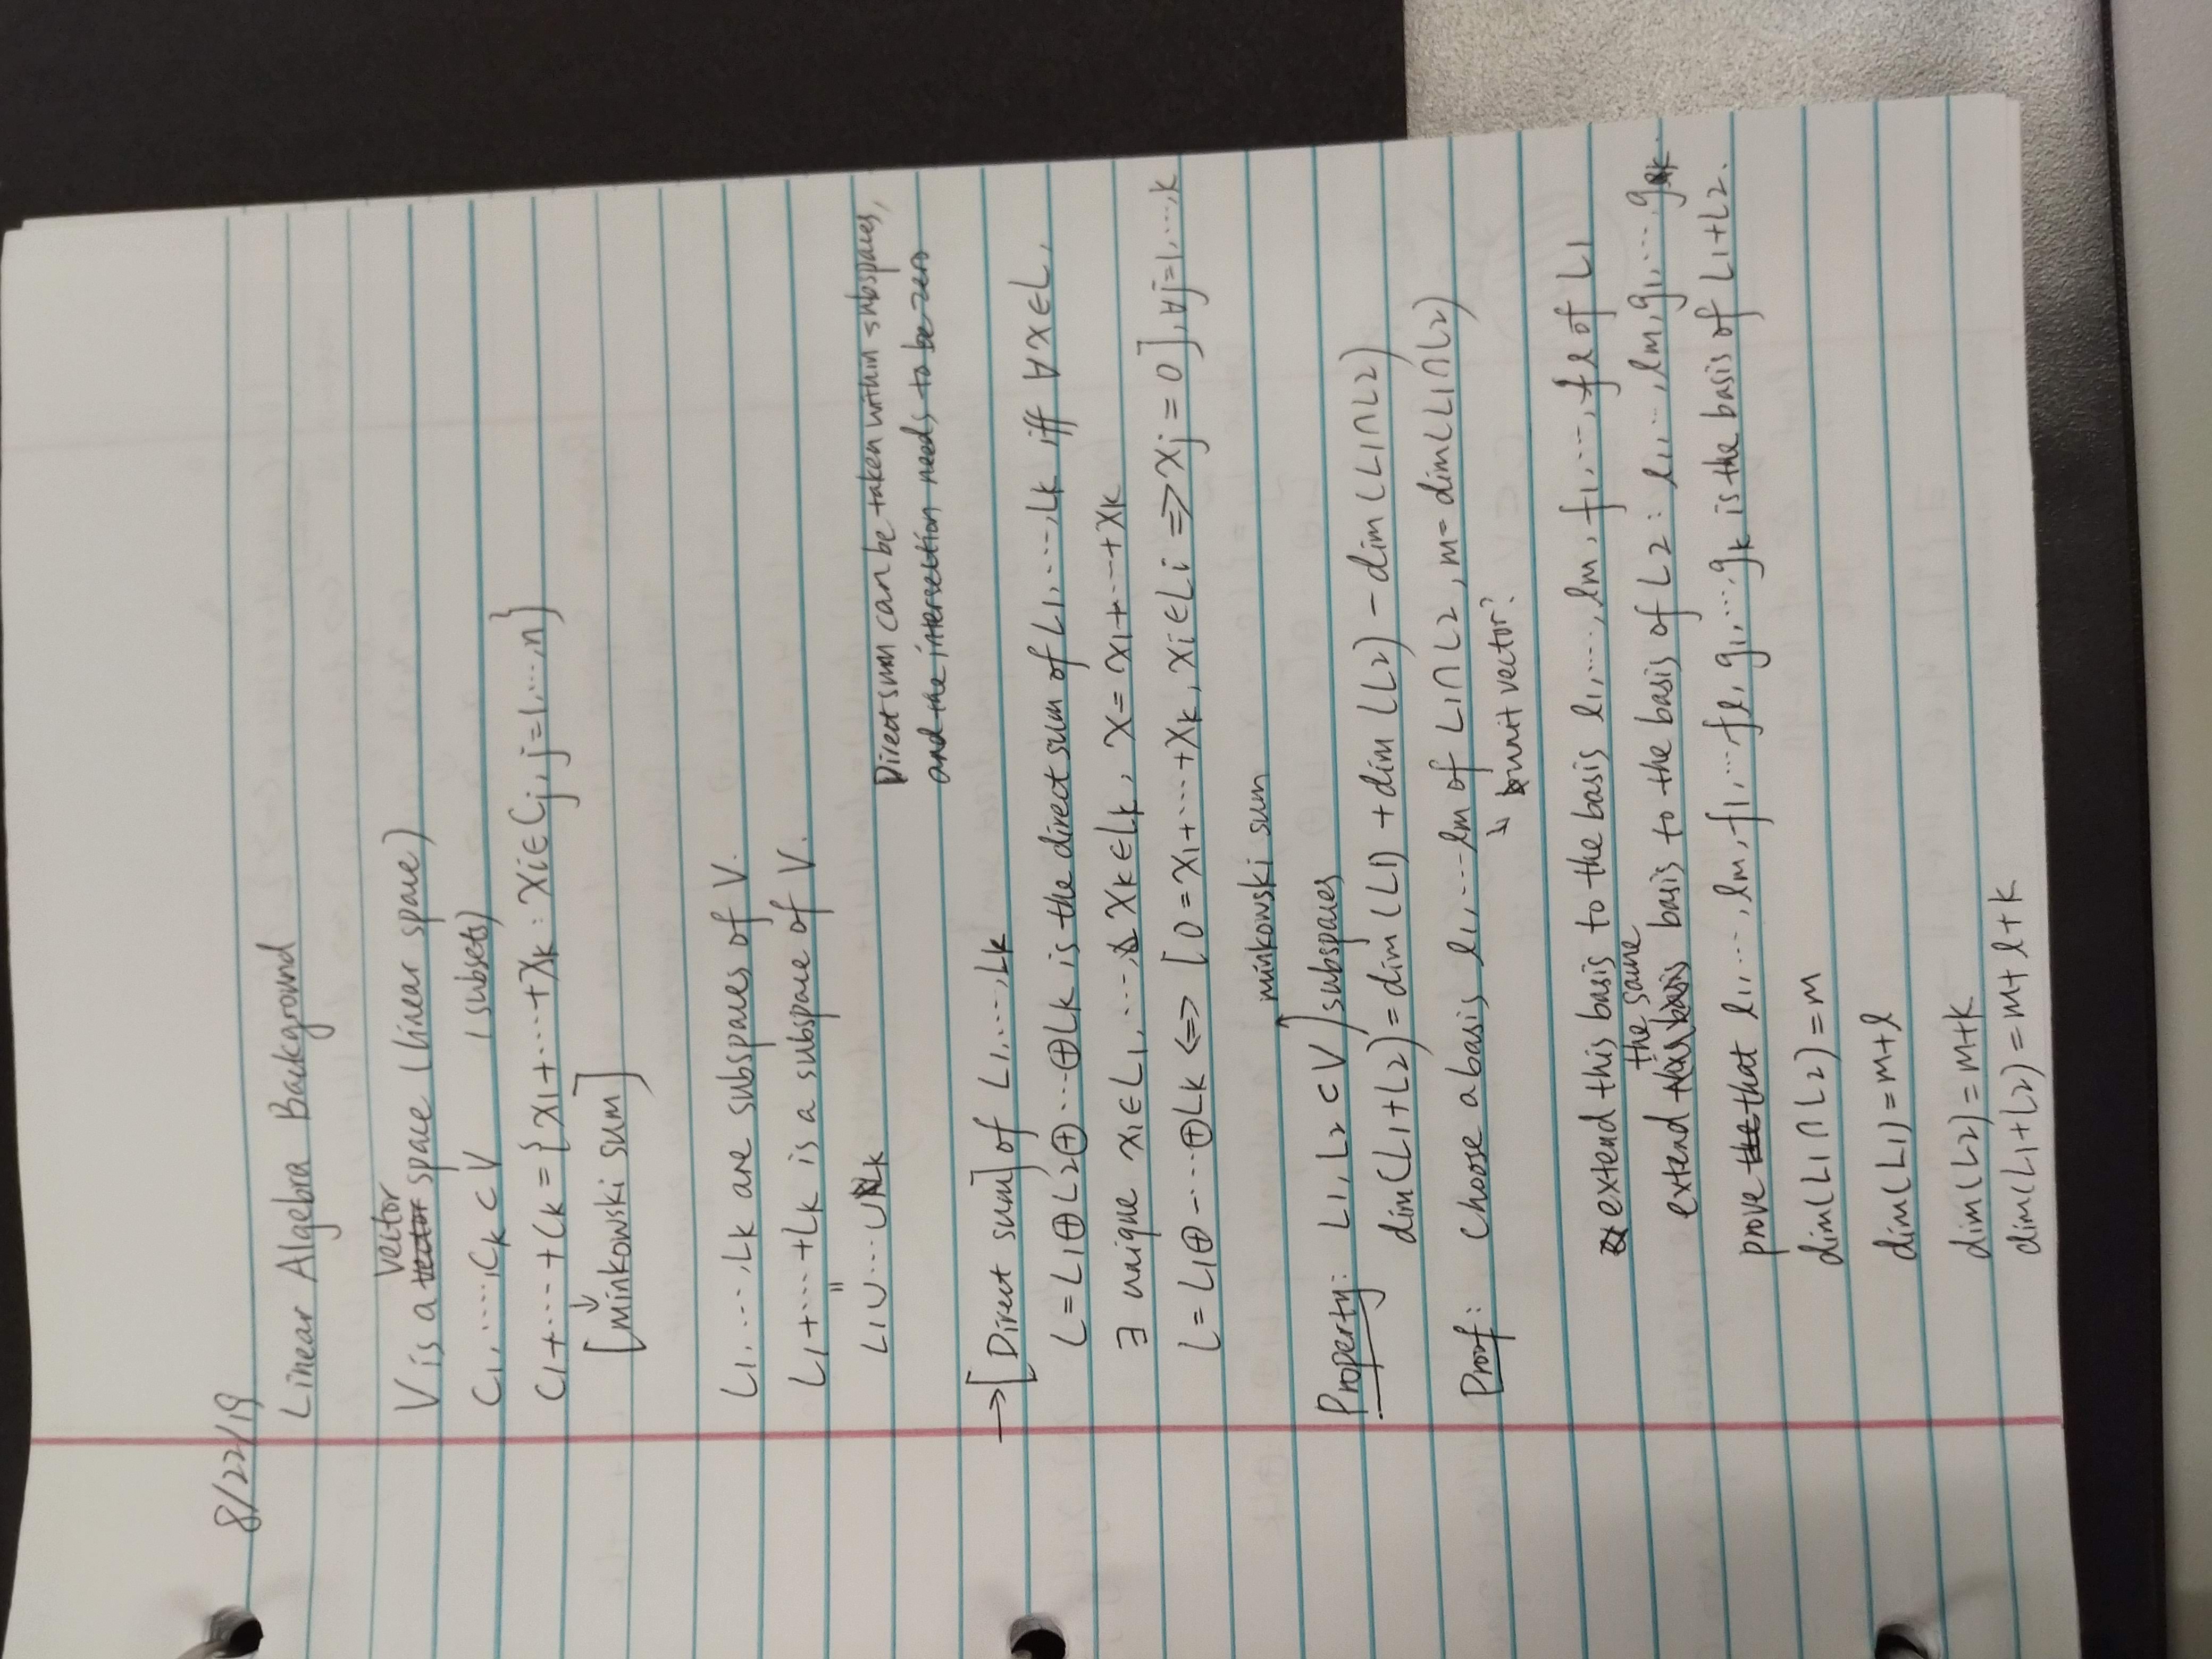 8/22/19
Linear Algebra Background
V is a vector space (linear space)
C1, ..., Ck ⊂ V (subsets)
C1 + ... + Ck = {x1 + ... + xk : xi ∈ Cj, j = 1, ..., n}
↓
[minkowski sum]
L1, ..., Lk are subspaces of V.
L1 + ... + Lk is a subspace of V.
=
L1 ∪ ... ∪ Lk
Direct sum can be taken within subspaces,
and the intersection needs to be zero
→ [Direct sum] of L1, ..., Lk
L = L1 ⊕ L2 ⊕ ... ⊕ Lk is the direct sum of L1, ..., Lk iff ∀x ∈ L,
∃ unique x1 ∈ L1, ..., xk ∈ Lk, x = x1 + ... + xk
L = L1 ⊕ ... ⊕ Lk ⟺ [0 = x1 + ... + xk, xi ∈ Li ⇒ xj = 0], ∀j = 1, ..., k
minkowski sum
Property: L1, L2 ⊂ V, subspaces
dim(L1 + L2) = dim(L1) + dim(L2) - dim(L1 ∩ L2)
Proof: choose a basis l1, ... lm of L1 ∩ L2, m = dim(L1 ∩ L2)
↳ unit vector?
extend this basis to the basis l1, ..., lm, f1, ..., fl of L1
extend the same basis to the basis of L2: l1, ..., lm, g1, ... gk.
prove that l1, ..., lm, f1, ... fl, g1, ..., gk is the basis of L1 + L2.
dim(L1 ∩ L2) = m
dim(L1) = m + l
dim(L2) = m + k
dim(L1 + L2) = m + l + k